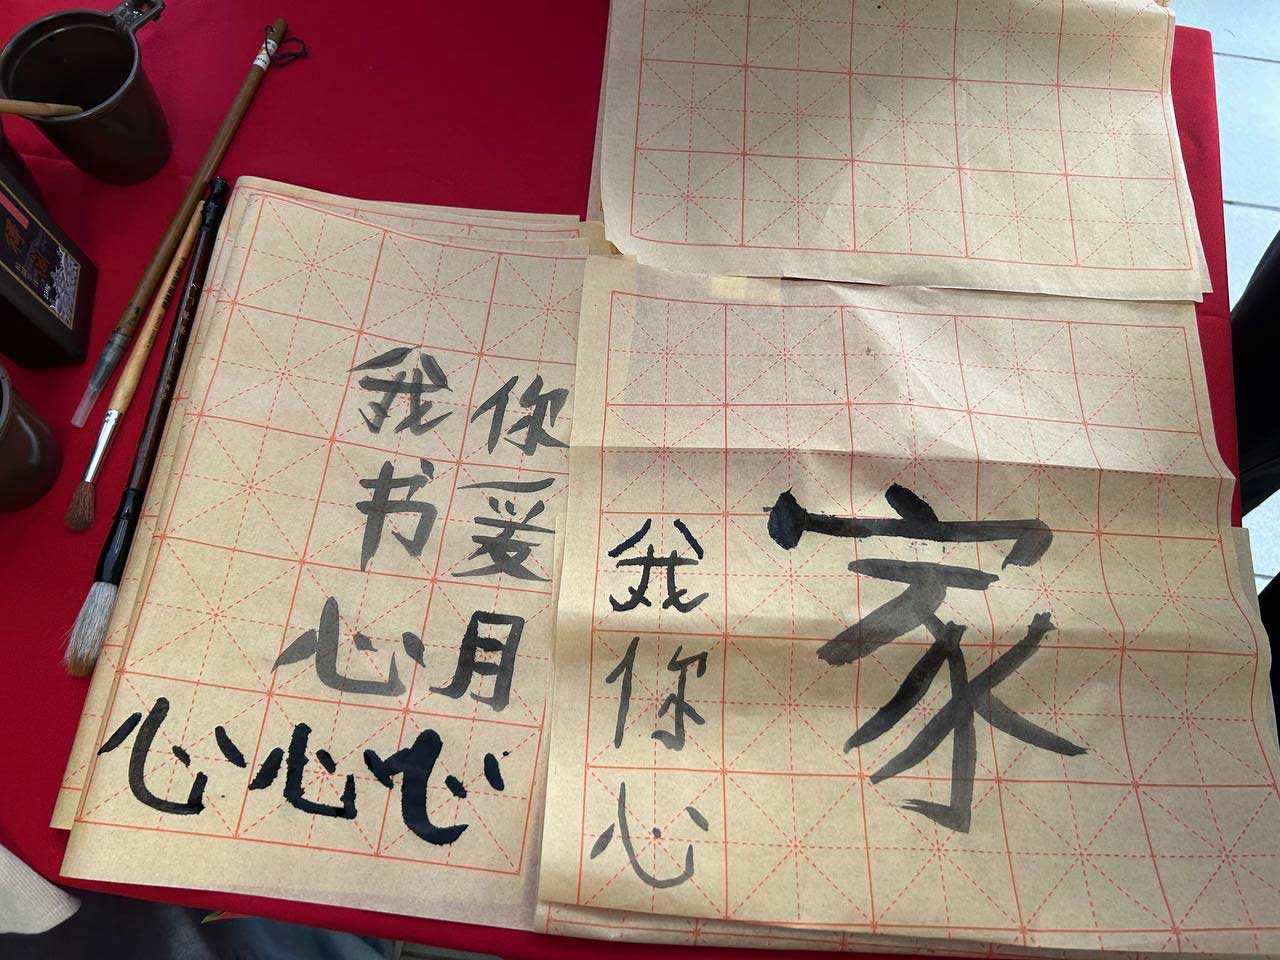 我书心
你爱月
心心心
我你心
家